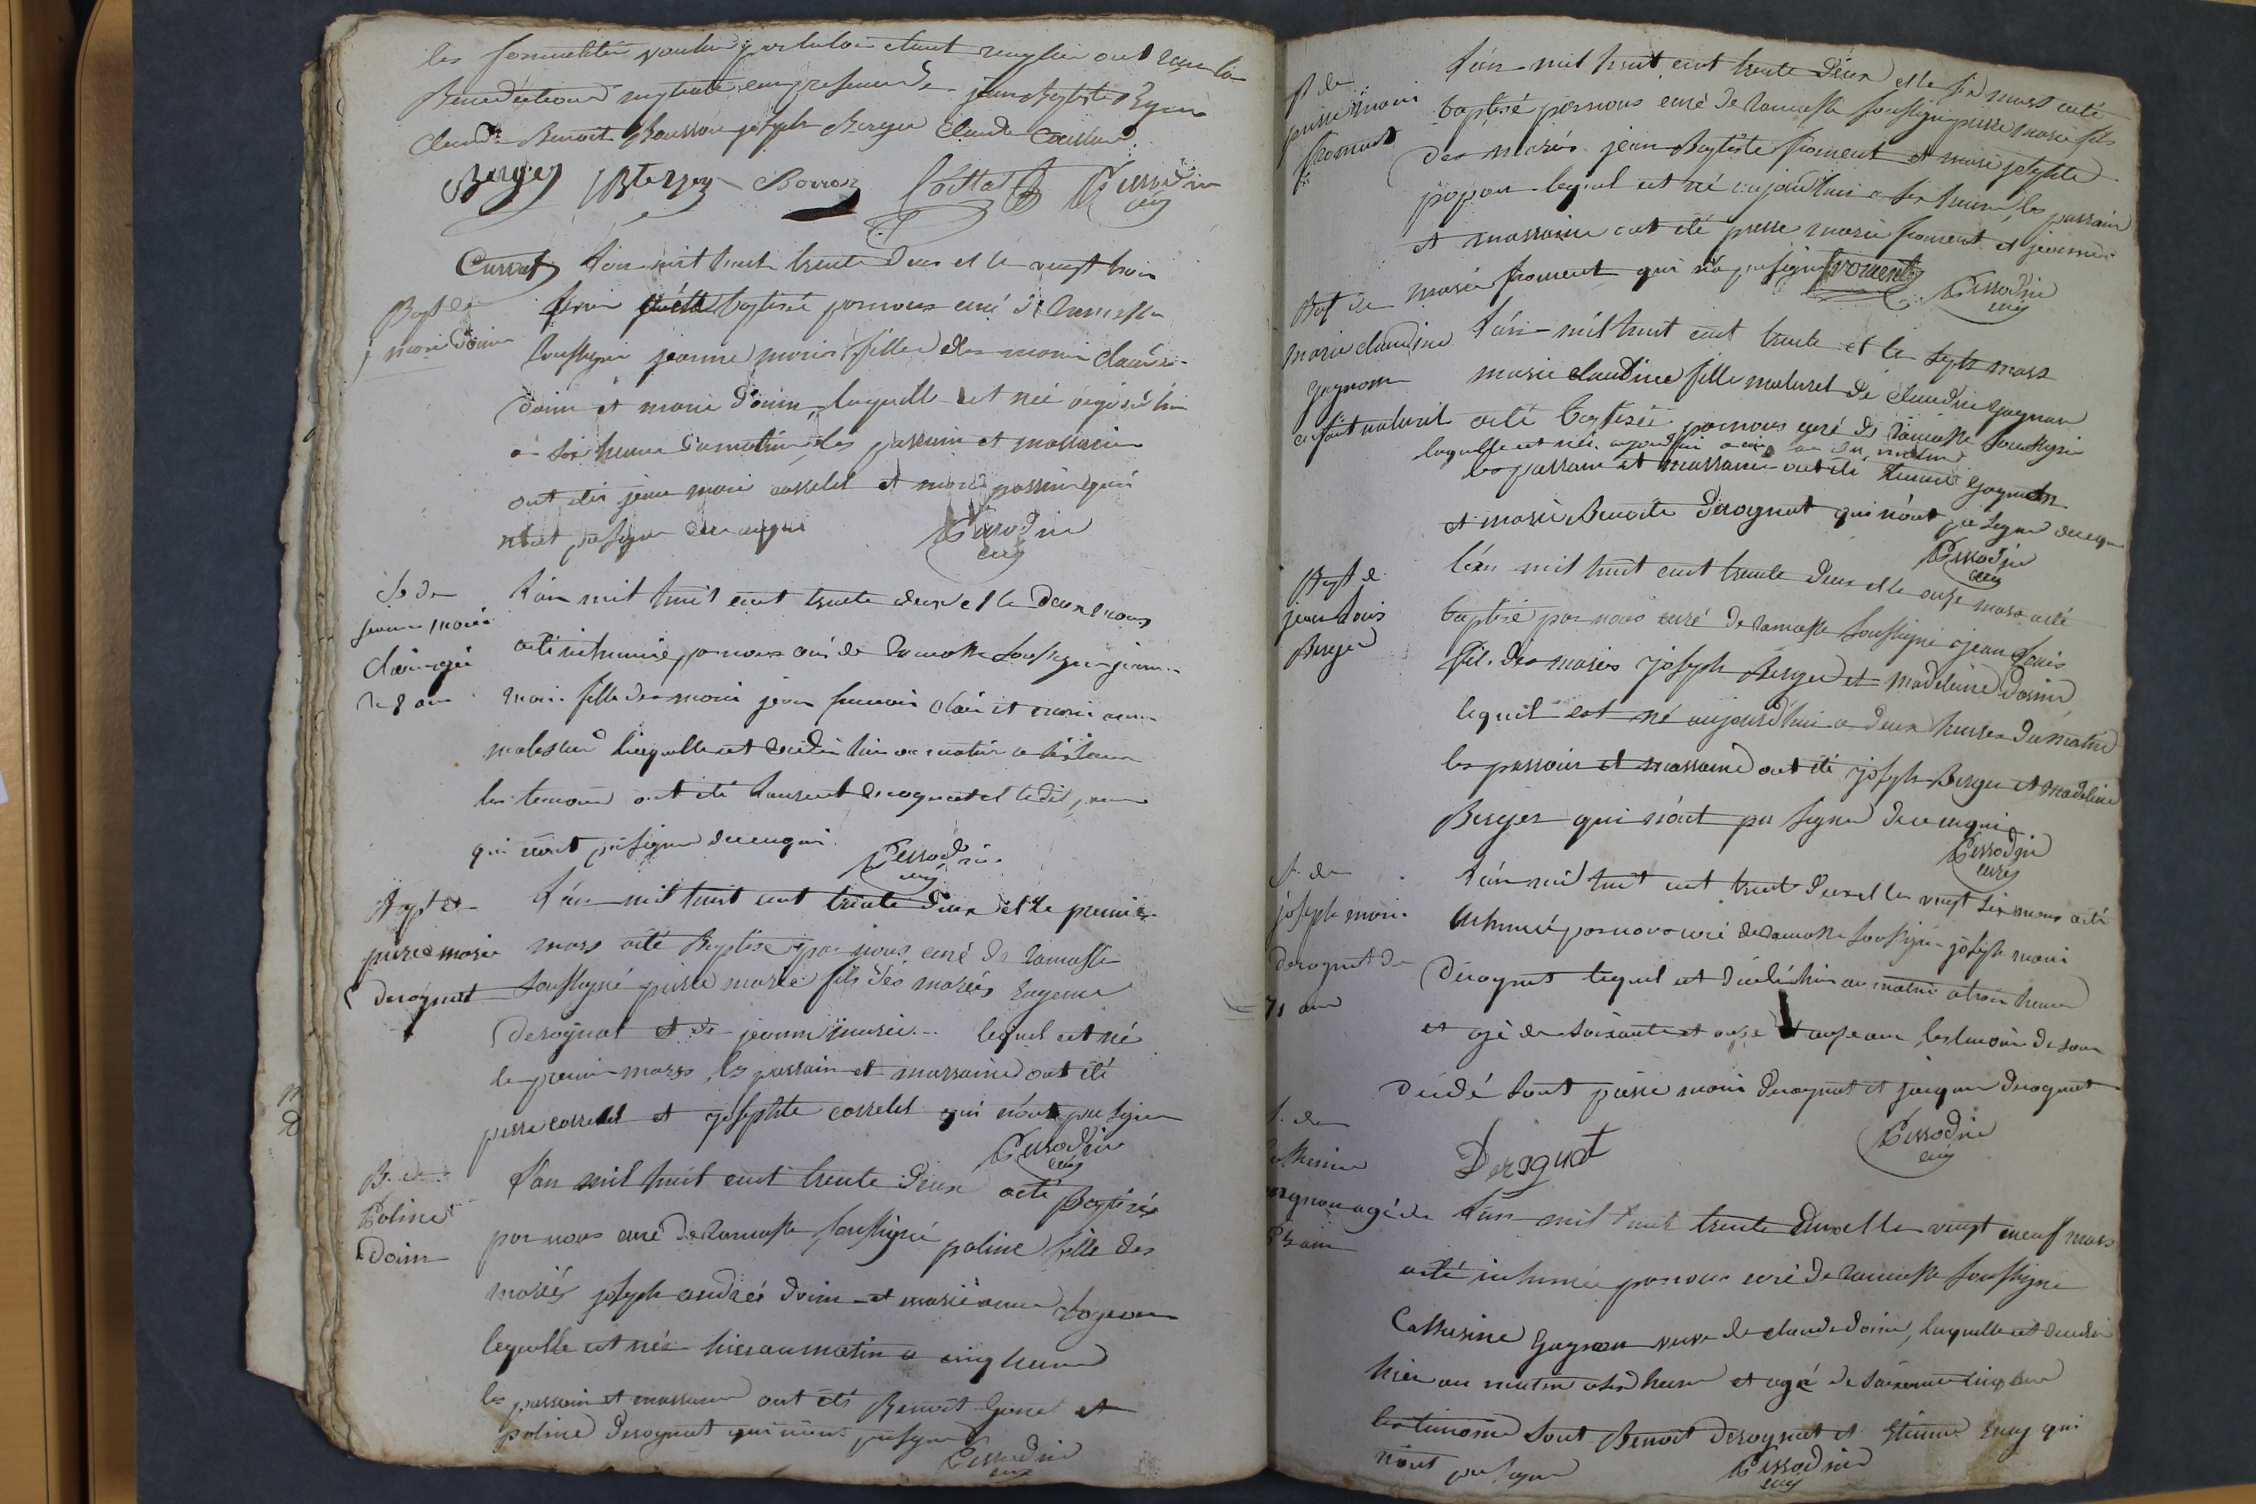 les formalités voulus par la loi etant remplies ont reçu la
Benediction nuptiale en presence de jean Baptiste
Claude Benoit joseph Berger Claude
Berger JBte Cottat Tissodrin curé
Curvat L'an mil huit trente deux et le vingt trois
Bapt de fevrier a été baptisé par nous curé de Ramasse
j marie Doin soussigné jeanne marie fille des mariés claude
Doin et marie Doin laquelle est née aujourd'hui
a six heures du matin, les parrain et marraine
ont été jean marie cosselet et marie qui
n'ont pu signer de ce requi Tissodrin curé
S. de L'an mil huit cent trente deux et le deux mars
jeanne marie a été inhumée par nous curé de Ramasse soussigné jeanne
Clair agée marie fille des mariés jean francois Clair et marie anne
de 8 ans laquelle est decedée hier au matin a six heures
les temoins ont été Laurent derognat et ledit
qui n'ont pu signer de ce requi Tissodrin curé
Bapt de L'an mil huit cent trente deux et le premier
pierre marie mars a été Baptisé par nous curé de Ramasse
derognat soussigné pierre marie fils des mariés Eugene
derognat et de jeanne marie lequel est né
le premier mars, les parrain et marraine ont été
pierre cosselet et josephte cosselet qui n'ont pu signer
Tissodrin curé
B. de L'an mil huit cent trente deux a été Baptisée
Poline par nous curé de Ramasse soussigné poline fille des
Doin mariés joseph andré doin et marie anne
lequelle est née hier au matin a cinq heures
les parrain et marraine ont été Benoit et
poline Derognat qui n'ont pu signer
Tissodrin curé
B de L'an mil huit cent trente deux et le six mars a été
pierre marie baptisé par nous curé de Ramasse soussigné pierre marie fils
froment des mariés jean Baptiste froment et marie josephte
popon lequel est né aujourd'hui a six heures, les parrain
et marraine ont été pierre marie froment et jeanne
marie froment qui n'a pu signer froment Tissodrin curé
Bapt de L'an mil huit cent trente et le sept mars
marie claudine marie claudine fille naturel de claudine Gagnon
Gagnon a été baptisée par nous curé de Ramasse soussigné
enfant naturel laquelle est née aujourd'hui a cinq du matin
les parrain et marraine ont été Gagnon
et marie Benoite Derognat qui n'ont pu signer de ce requi
Tissodrin curé
Bapt de L'an mil huit cent trente deux et le onze mars a été
jean Louis baptisé par nous curé de Ramasse soussigné jean Louis
Berger fils des mariés joseph Berger et madeleine Doin
lequel est né aujourd'hui a deux heures du matin
les parrain et marraine ont été joseph Berger et madeleine
Berger qui n'ont pu signer de ce requi
Tissodrin curé
S. de L'an mil huit cent trente deux et le vingt six mars a été
joseph marie inhumé par nous curé de Ramasse soussigné joseph marie
derognat de Derognat lequel est decedé hier au matin a trois heures
71 ans et agé de soixante et onze ans, les temoins de son
decé sont pierre marie derognat et jacques derognat
Derognat Tissodrin curé
S. de
Gagnon agée de L'an mil huit trente deux et le vingt neuf mars
65 ans a été inhumée par nous curé de Ramasse soussigné
Catherine Gagnon veuve de claude doin, laquelle est decedée
hier au matin a six heures et agé de soixante cinq ans
les temoins sont Benoit derognat et Etienne qui
n'ont pu signer Tissodrin curé